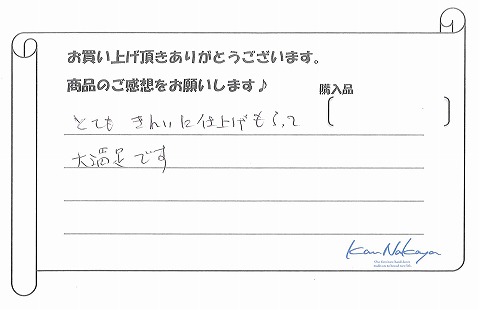 お買い上げ頂きありがとうございます。
商品のご感想をお願いします♪
購入品
とても きれいに仕上げもらって
大満足です
Kan Nakaya